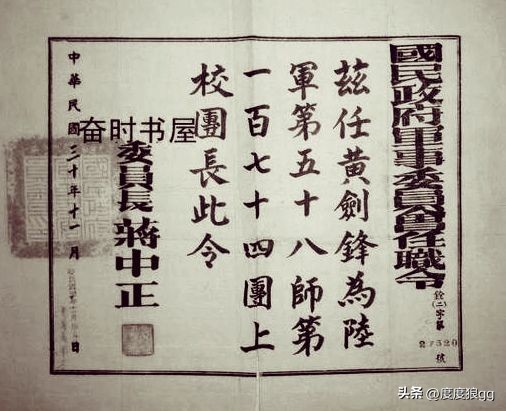 國民政府軍事委員會任職令
銓(二)字第
27520
號
茲任黃劍鋒為陸
軍第五十八師第
一百七十四團上
校團長此令
委員長 蔣中正
中華民國三十年十一月
日
奋时书屋
头条 @度度狼gg